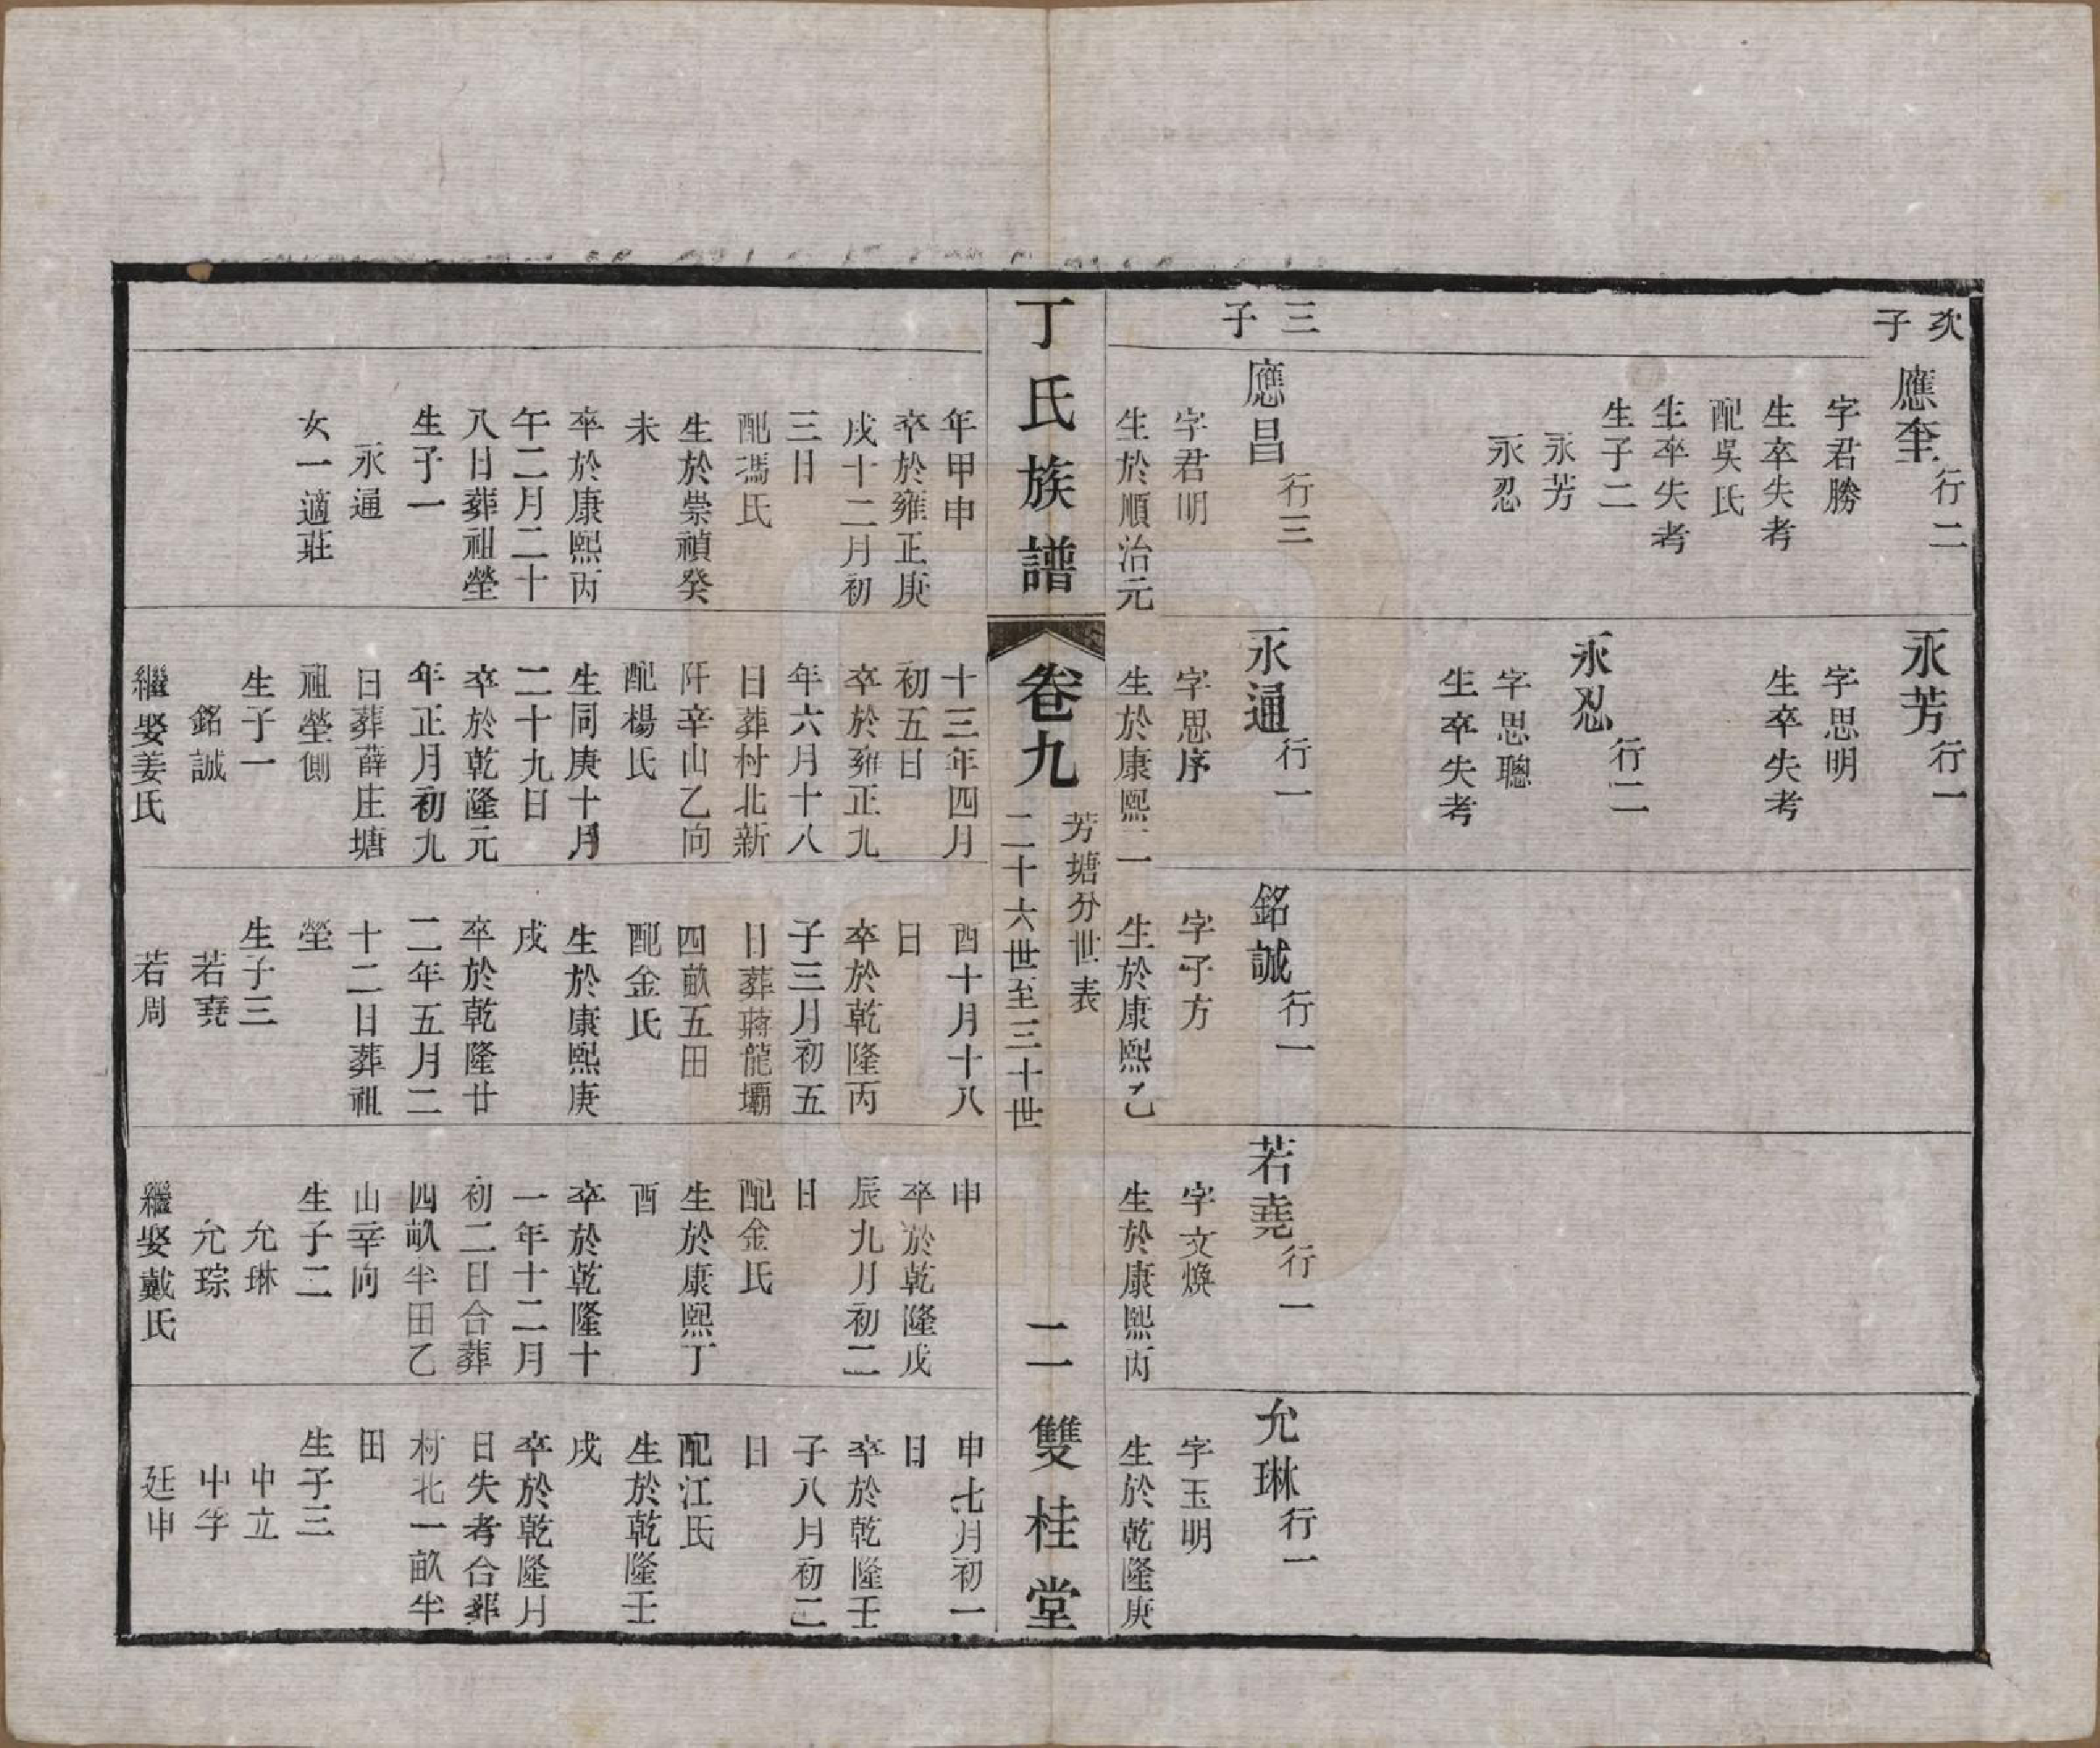 次子
應奎行二
字君勝
生卒失考
配吳氏
生卒失考
生子二
永芳
永忍
三子
應昌行三
字君明
生於順治元
年甲申
卒於雍正庚
戌十二月初
三日
配馮氏
生於崇禎癸
未
卒於康熙丙
午二月二十
八日葬祖塋
生子一
永通
女一適莊
永芳行一
字思明
生卒失考
永忍行二
字思聰
生卒失考
永通行一
字思序
生於康熙二
十三年四月
初五日
卒於雍正九
年六月十八
日葬村北新
阡辛山乙向
配楊氏
生同庚十月
二十九日
卒於乾隆元
年正月初九
日葬薛庄塘
祖塋側
生子一
銘誠
繼娶姜氏
銘誠行一
字子方
生於康熙乙
酉十月十八
日
卒於乾隆丙
子三月初五
日葬蔣龍壩
四畝五田
配金氏
生於康熙庚
戌
卒於乾隆廿
二年五月二
十二日葬祖
塋
生子三
若堯
若周
若堯行一
字文煥
生於康熙丙
申
卒於乾隆戊
辰九月初二
日
配金氏
生於康熙丁
酉
卒於乾隆十
一年十二月
初二日合葬
四畝半田乙
山辛向
生子二
允琳
允琮
繼娶戴氏
允琳行一
字玉明
生於乾隆庚
申七月初一
日
卒於乾隆壬
子八月初二
日
配江氏
生於乾隆壬
戌
卒於乾隆月
日失考合葬
村北一畝半
田
生子三
中立
中孚
廷申
丁氏族譜
卷九
芳塘分世表
二十六世至三十世
二
雙桂堂